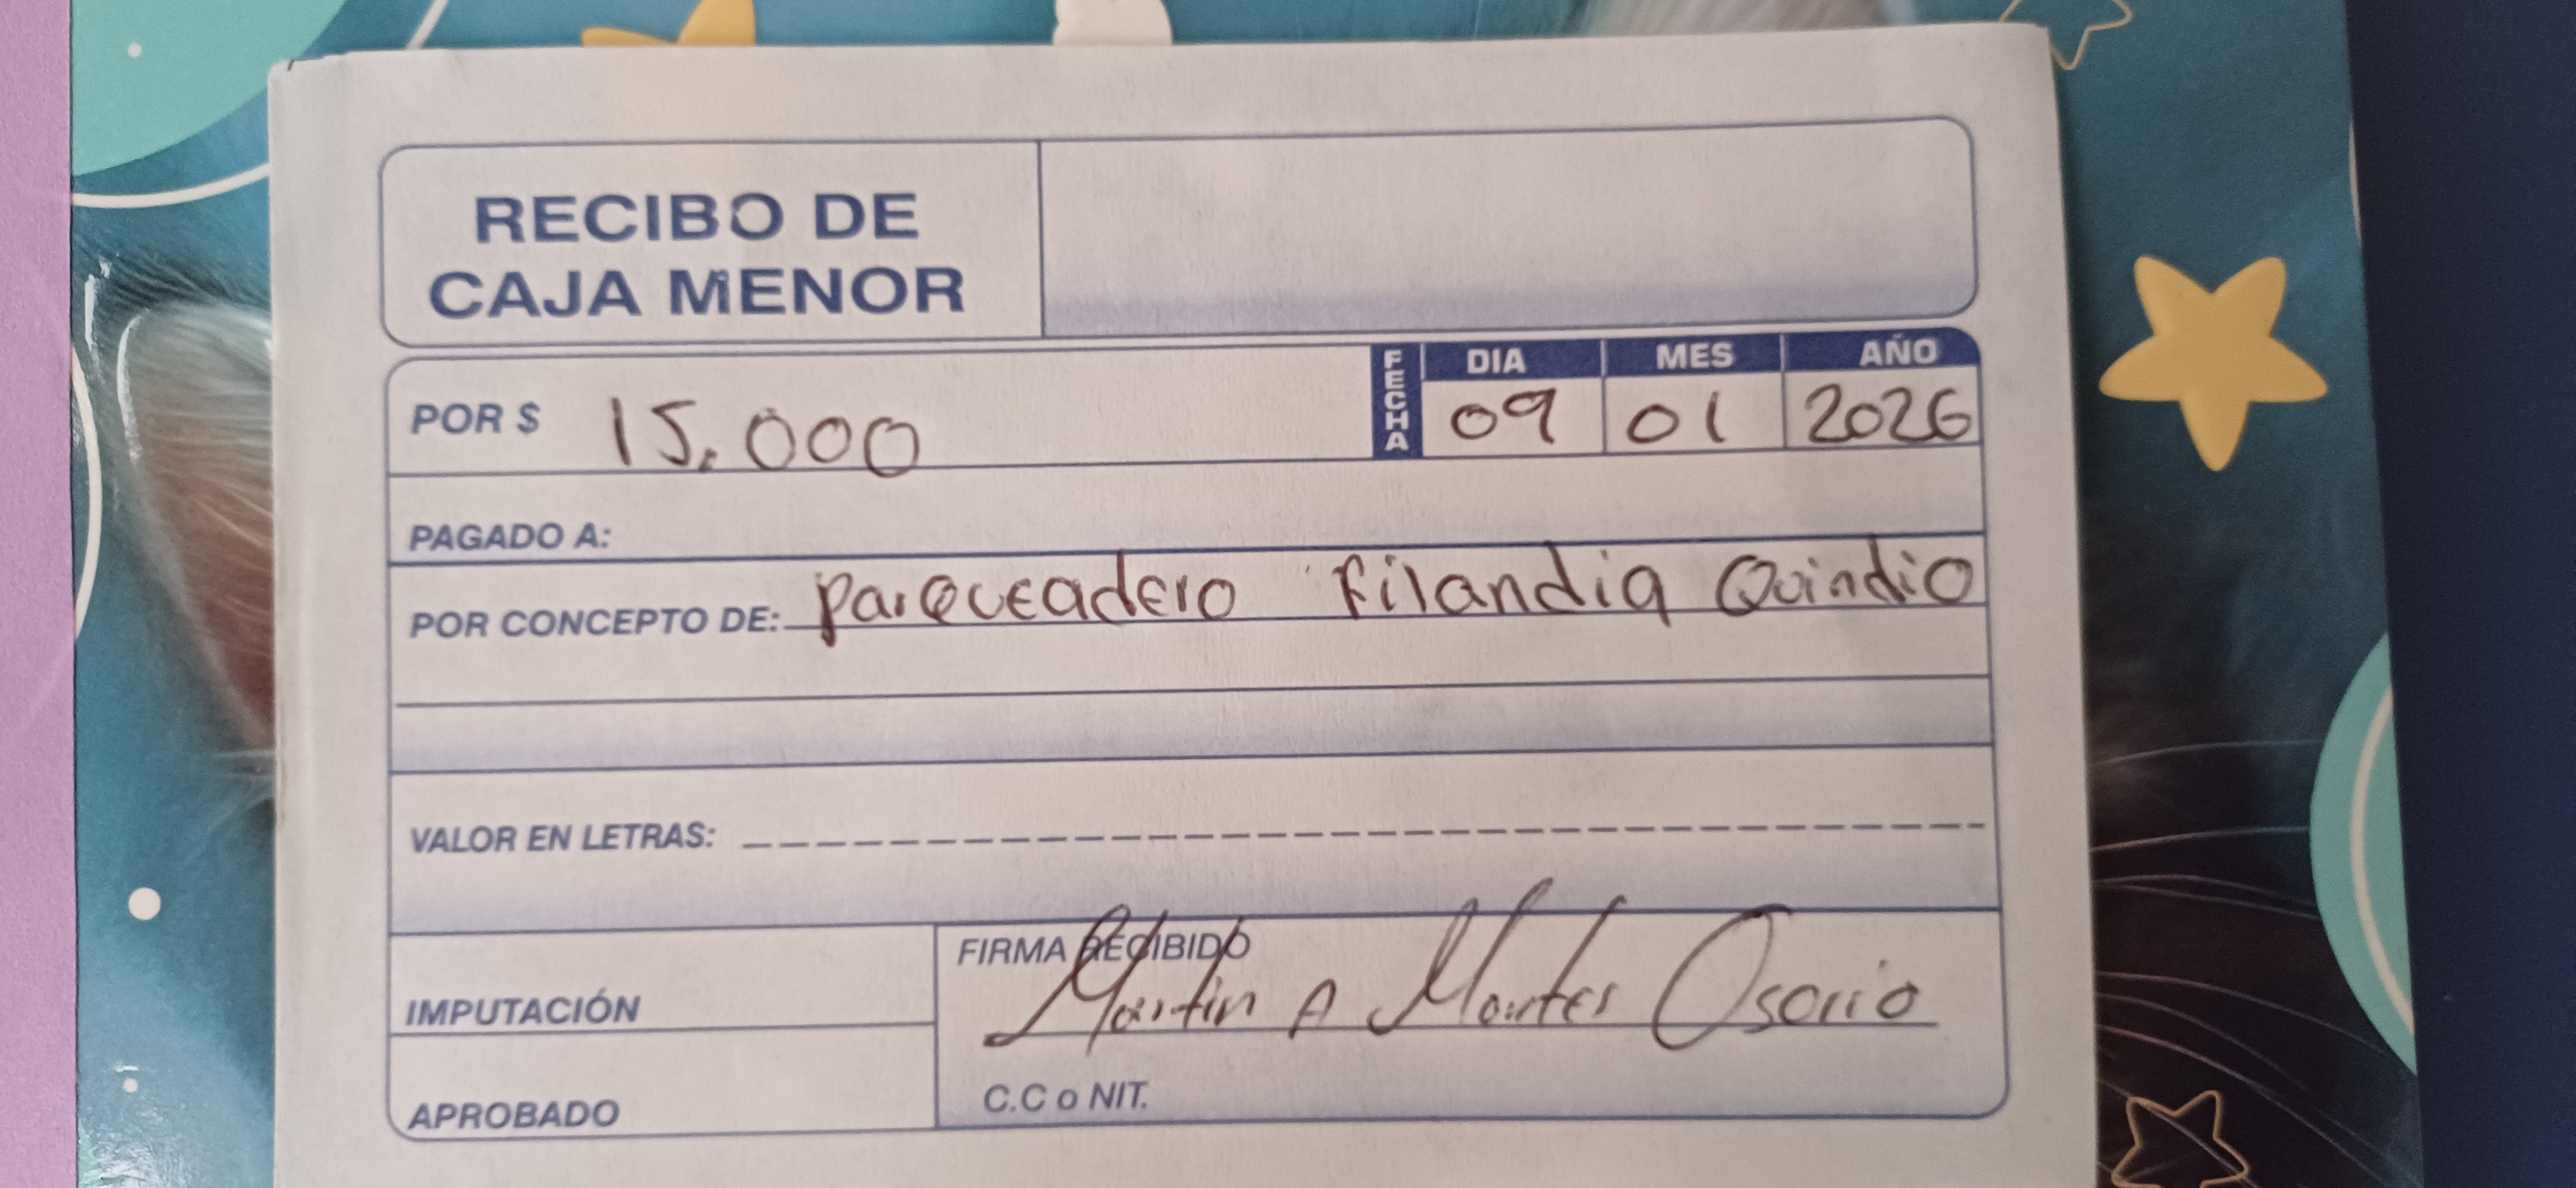 RECIBO DE
CAJA MENOR
FECHA DIA MES AÑO
POR $ 15.000 09 01 2026
PAGADO A:
POR CONCEPTO DE: Parqueadero Filandia Quindio
VALOR EN LETRAS:
FIRMA RECIBIDO
Martin A Montes Osorio
IMPUTACIÓN
C.C o NIT.
APROBADO